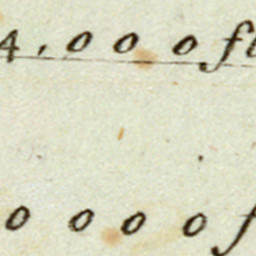 4.000 fl
0000 f